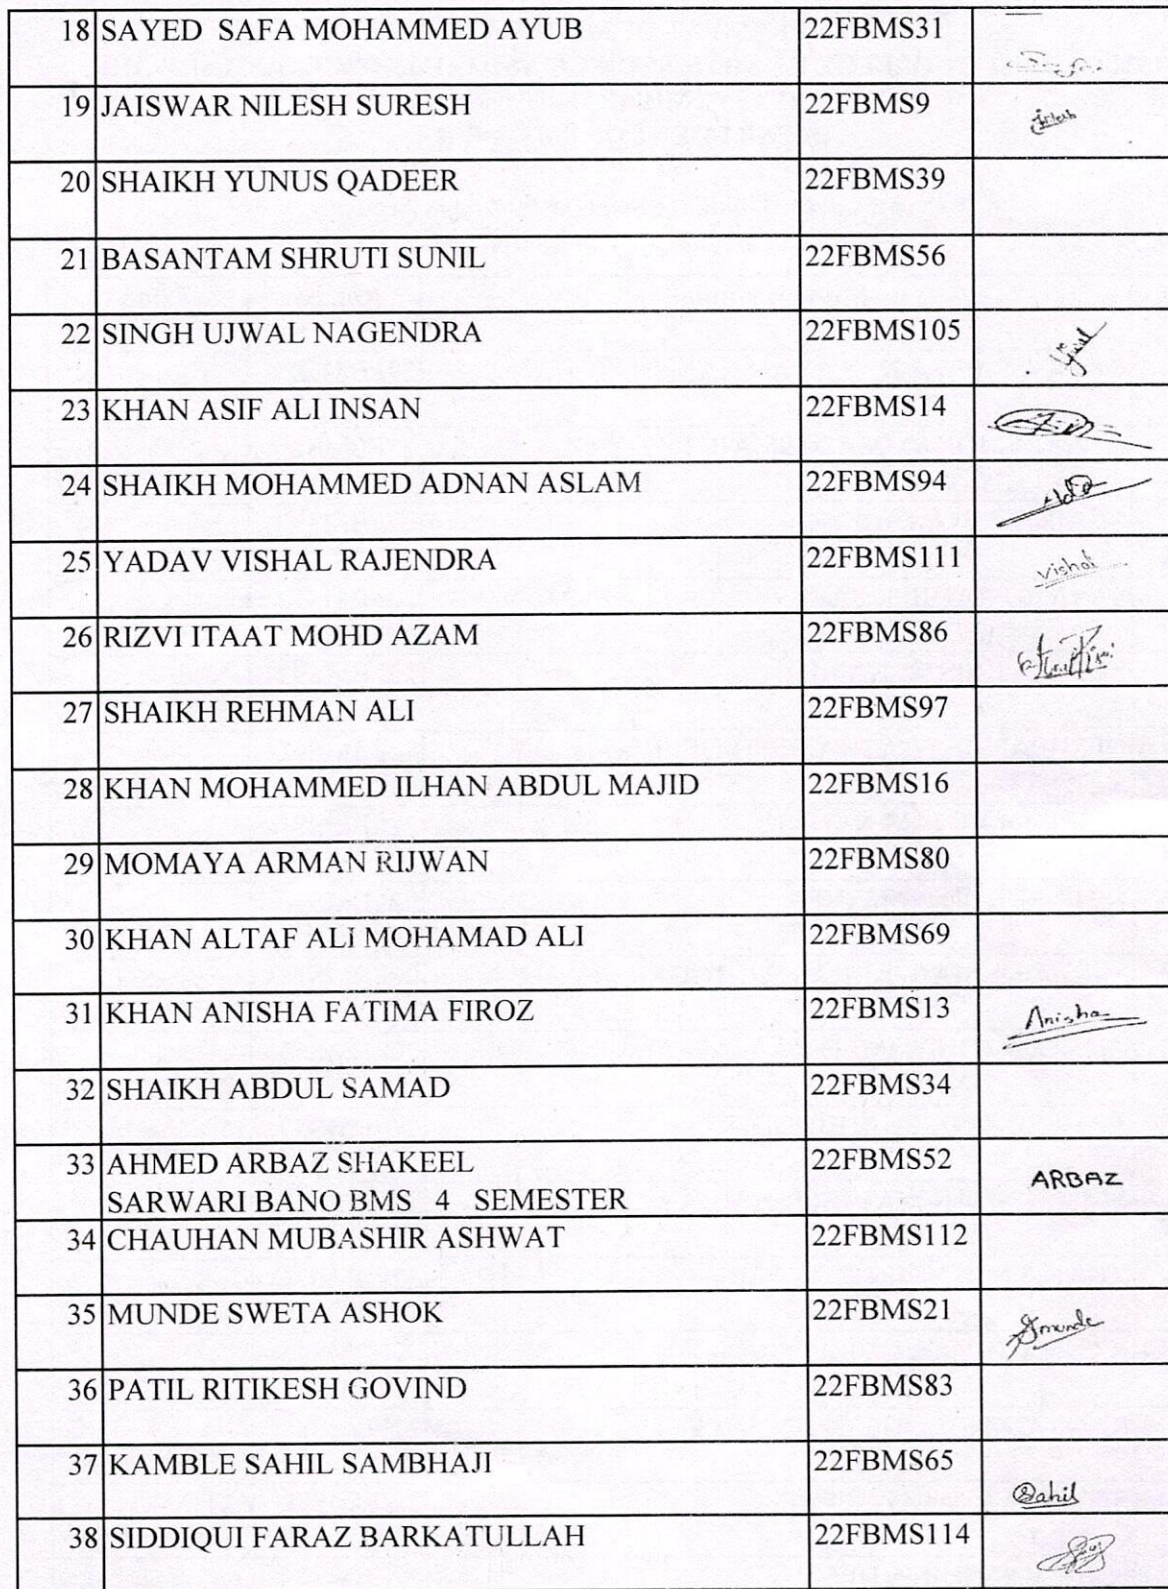 18 SAYED SAFA MOHAMMED AYUB 22FBMS31
19 JAISWAR NILESH SURESH 22FBMS9
20 SHAIKH YUNUS QADEER 22FBMS39
21 BASANTAM SHRUTI SUNIL 22FBMS56
22 SINGH UJWAL NAGENDRA 22FBMS105
23 KHAN ASIF ALI INSAN 22FBMS14
24 SHAIKH MOHAMMED ADNAN ASLAM 22FBMS94
25 YADAV VISHAL RAJENDRA 22FBMS111 Vishal
26 RIZVI ITAAT MOHD AZAM 22FBMS86
27 SHAIKH REHMAN ALI 22FBMS97
28 KHAN MOHAMMED ILHAN ABDUL MAJID 22FBMS16
29 MOMAYA ARMAN RIJWAN 22FBMS80
30 KHAN ALTAF ALI MOHAMAD ALI 22FBMS69
31 KHAN ANISHA FATIMA FIROZ 22FBMS13 Anisha
32 SHAIKH ABDUL SAMAD 22FBMS34
33 AHMED ARBAZ SHAKEEL 22FBMS52 ARBAZ
SARWARI BANO BMS 4 SEMESTER
34 CHAUHAN MUBASHIR ASHWAT 22FBMS112
35 MUNDE SWETA ASHOK 22FBMS21 Smunde
36 PATIL RITIKESH GOVIND 22FBMS83
37 KAMBLE SAHIL SAMBHAJI 22FBMS65 Sahil
38 SIDDIQUI FARAZ BARKATULLAH 22FBMS114